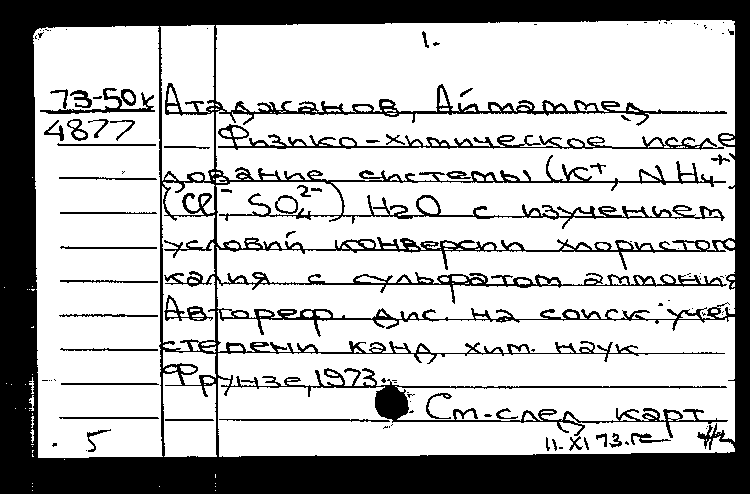 1.
73-50к Атаджанов, Аймаммед.
4877 Физико-химическое иссле
дование системы (K⁺, NH₄⁺)
(Cl⁻, SO₄²⁻), H₂O с изучением
условий конверсии хлористого
калия с сульфатом аммония
Автореф. дис. на соиск. учен
степени канд. хим. наук.
Фрунзе, 1973.
См. след карт
5 11.XI 73.г